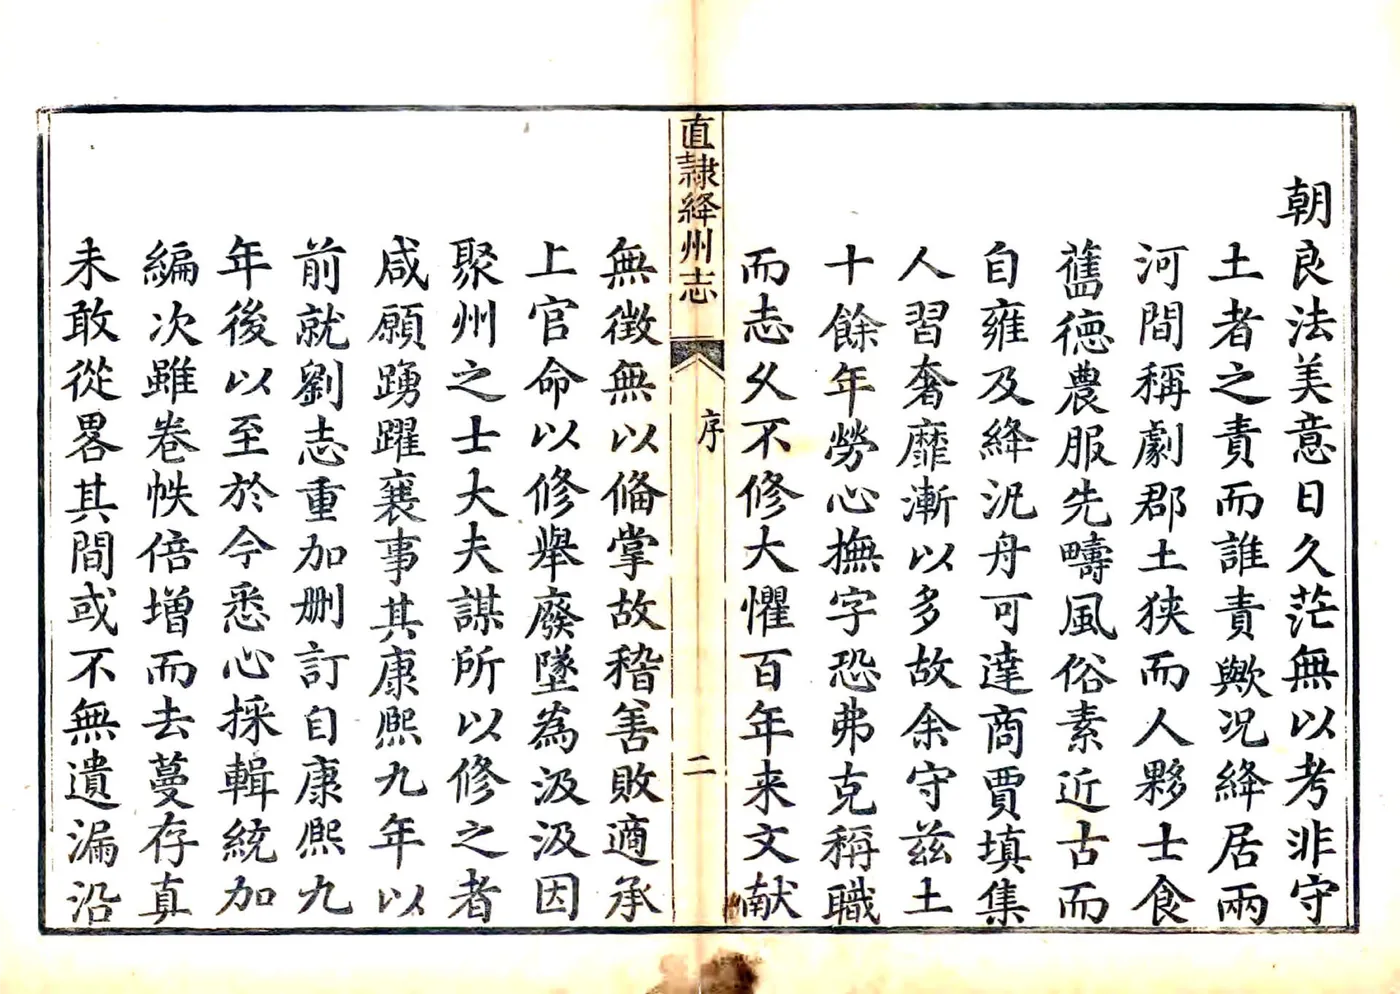 朝良法美意日久茫無以考非守
土者之責而誰責歟况絳居兩
河間稱劇郡土狹而人夥士食
舊德農服先疇風俗素近古而
自雍及絳汎舟可達商賈填集
人習奢靡漸以多故余守兹土
十餘年勞心撫字恐弗克稱職
而志久不修大懼百年来文献
直隷絳州志
序
二
無徵無以俻掌故稽善敗適承
上官命以修舉廢墜為汲汲因
聚州之士大夫謀所以修之者
咸願踴躍襄事其康熙九年以
前就劉志重加刪訂自康熙九
年後以至於今悉心採輯統加
編次雖卷帙倍增而去蔓存真
未敢從畧其間或不無遺漏沿